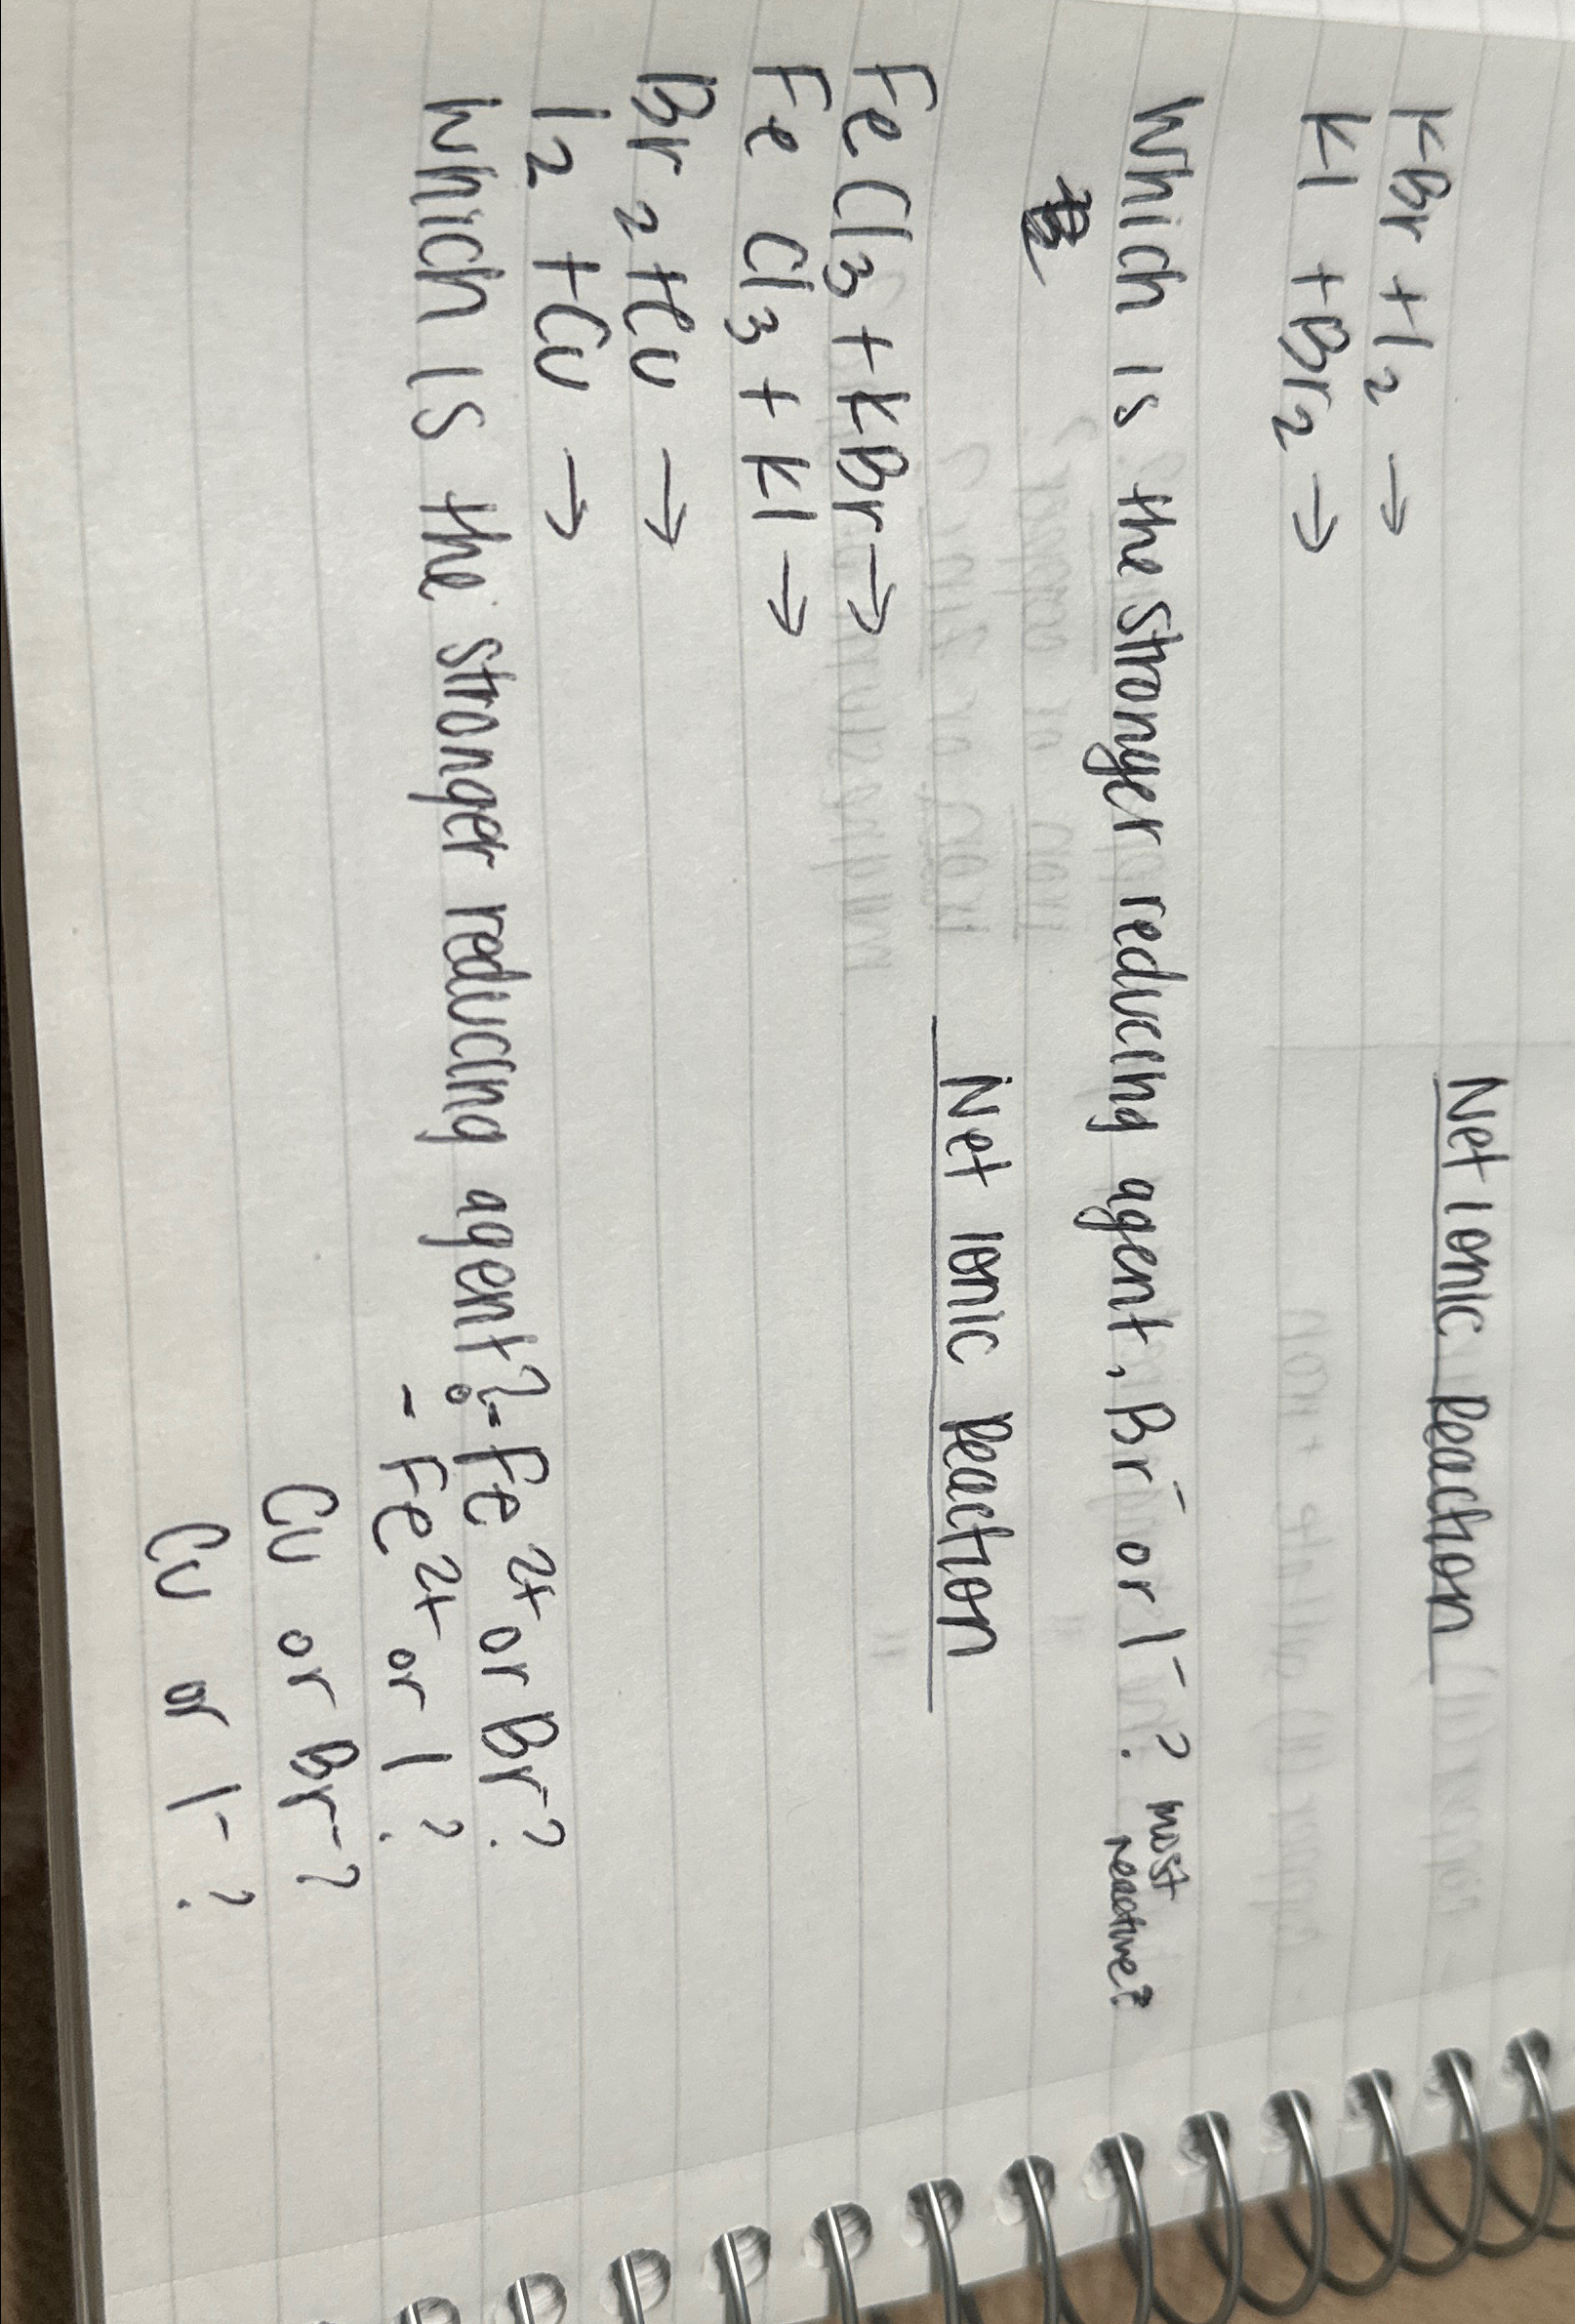 Net Ionic Reaction
KBr + I2 →
KI + Br2 →
Which is the stronger reducing agent, Br- or I-? most reactive?
Net Ionic Reaction
FeCl3 + KBr →
FeCl3 + KI →
Br2 + Cu →
I2 + Cu →
Which is the stronger reducing agent? - Fe2+ or Br-?
- Fe2+ or I?
Cu or Br-?
Cu or I-?